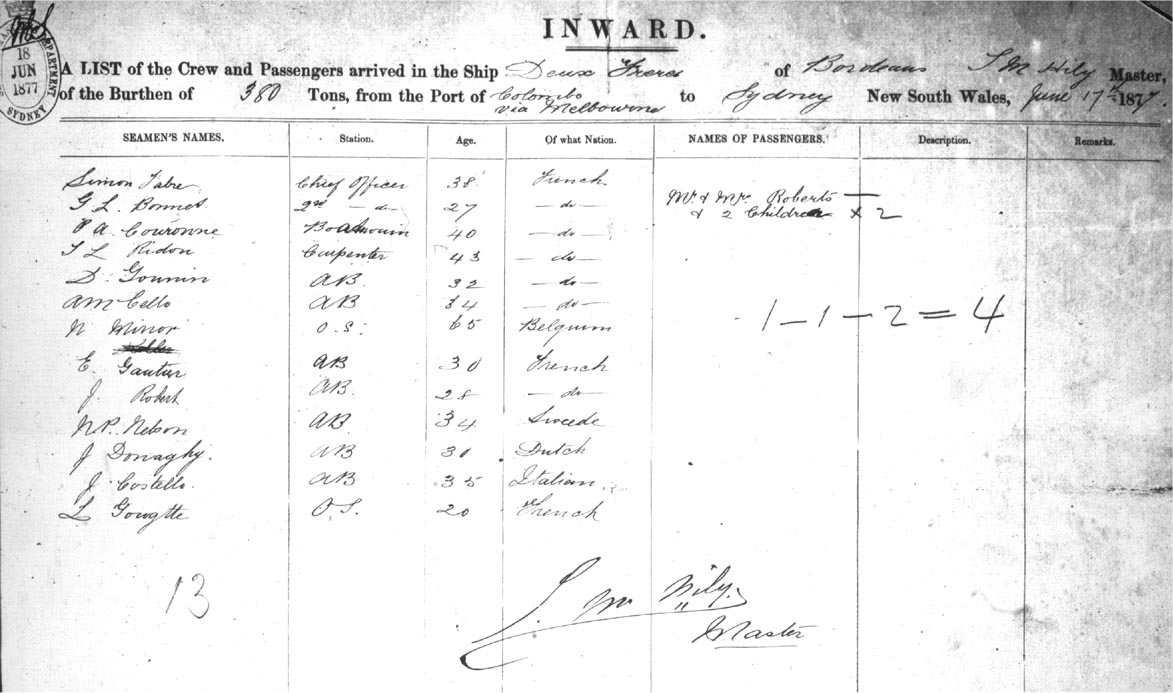 INWARD.
18
JUN
1877
SYDNEY
A LIST of the Crew and Passengers arrived in the Ship Deux Freres of Bordeaus Master,
of the Burthen of 380 Tons, from the Port of Colombo via Melbourne to Sydney New South Wales, June 17th 1877
SEAMEN'S NAMES. Station. Age. Of what Nation. NAMES OF PASSENGERS. Description. Remarks.
Simon Fabre Chief Officer 38 French Mr & Mrs Roberts —
G L. Bonnet 2nd — do 27 — do — & 2 Children x 2
P A. Couronne 40 — do —
Ridon Carpenter 43 — do —
D. Gounin AB. 32 — do —
AM Cello AB 34 — do —
N Minor O. S. 65 Belgium 1 – 1 – 2 = 4
E. Gautier AB 30 French
J. Robert AB. 28 — do —
N. P. Nelson AB. 34 Swede
J Donaghy. AB 30 Dutch
J. Costello. AB 35 Italian.
L Gowgtte O. S. 20 French
13
Master